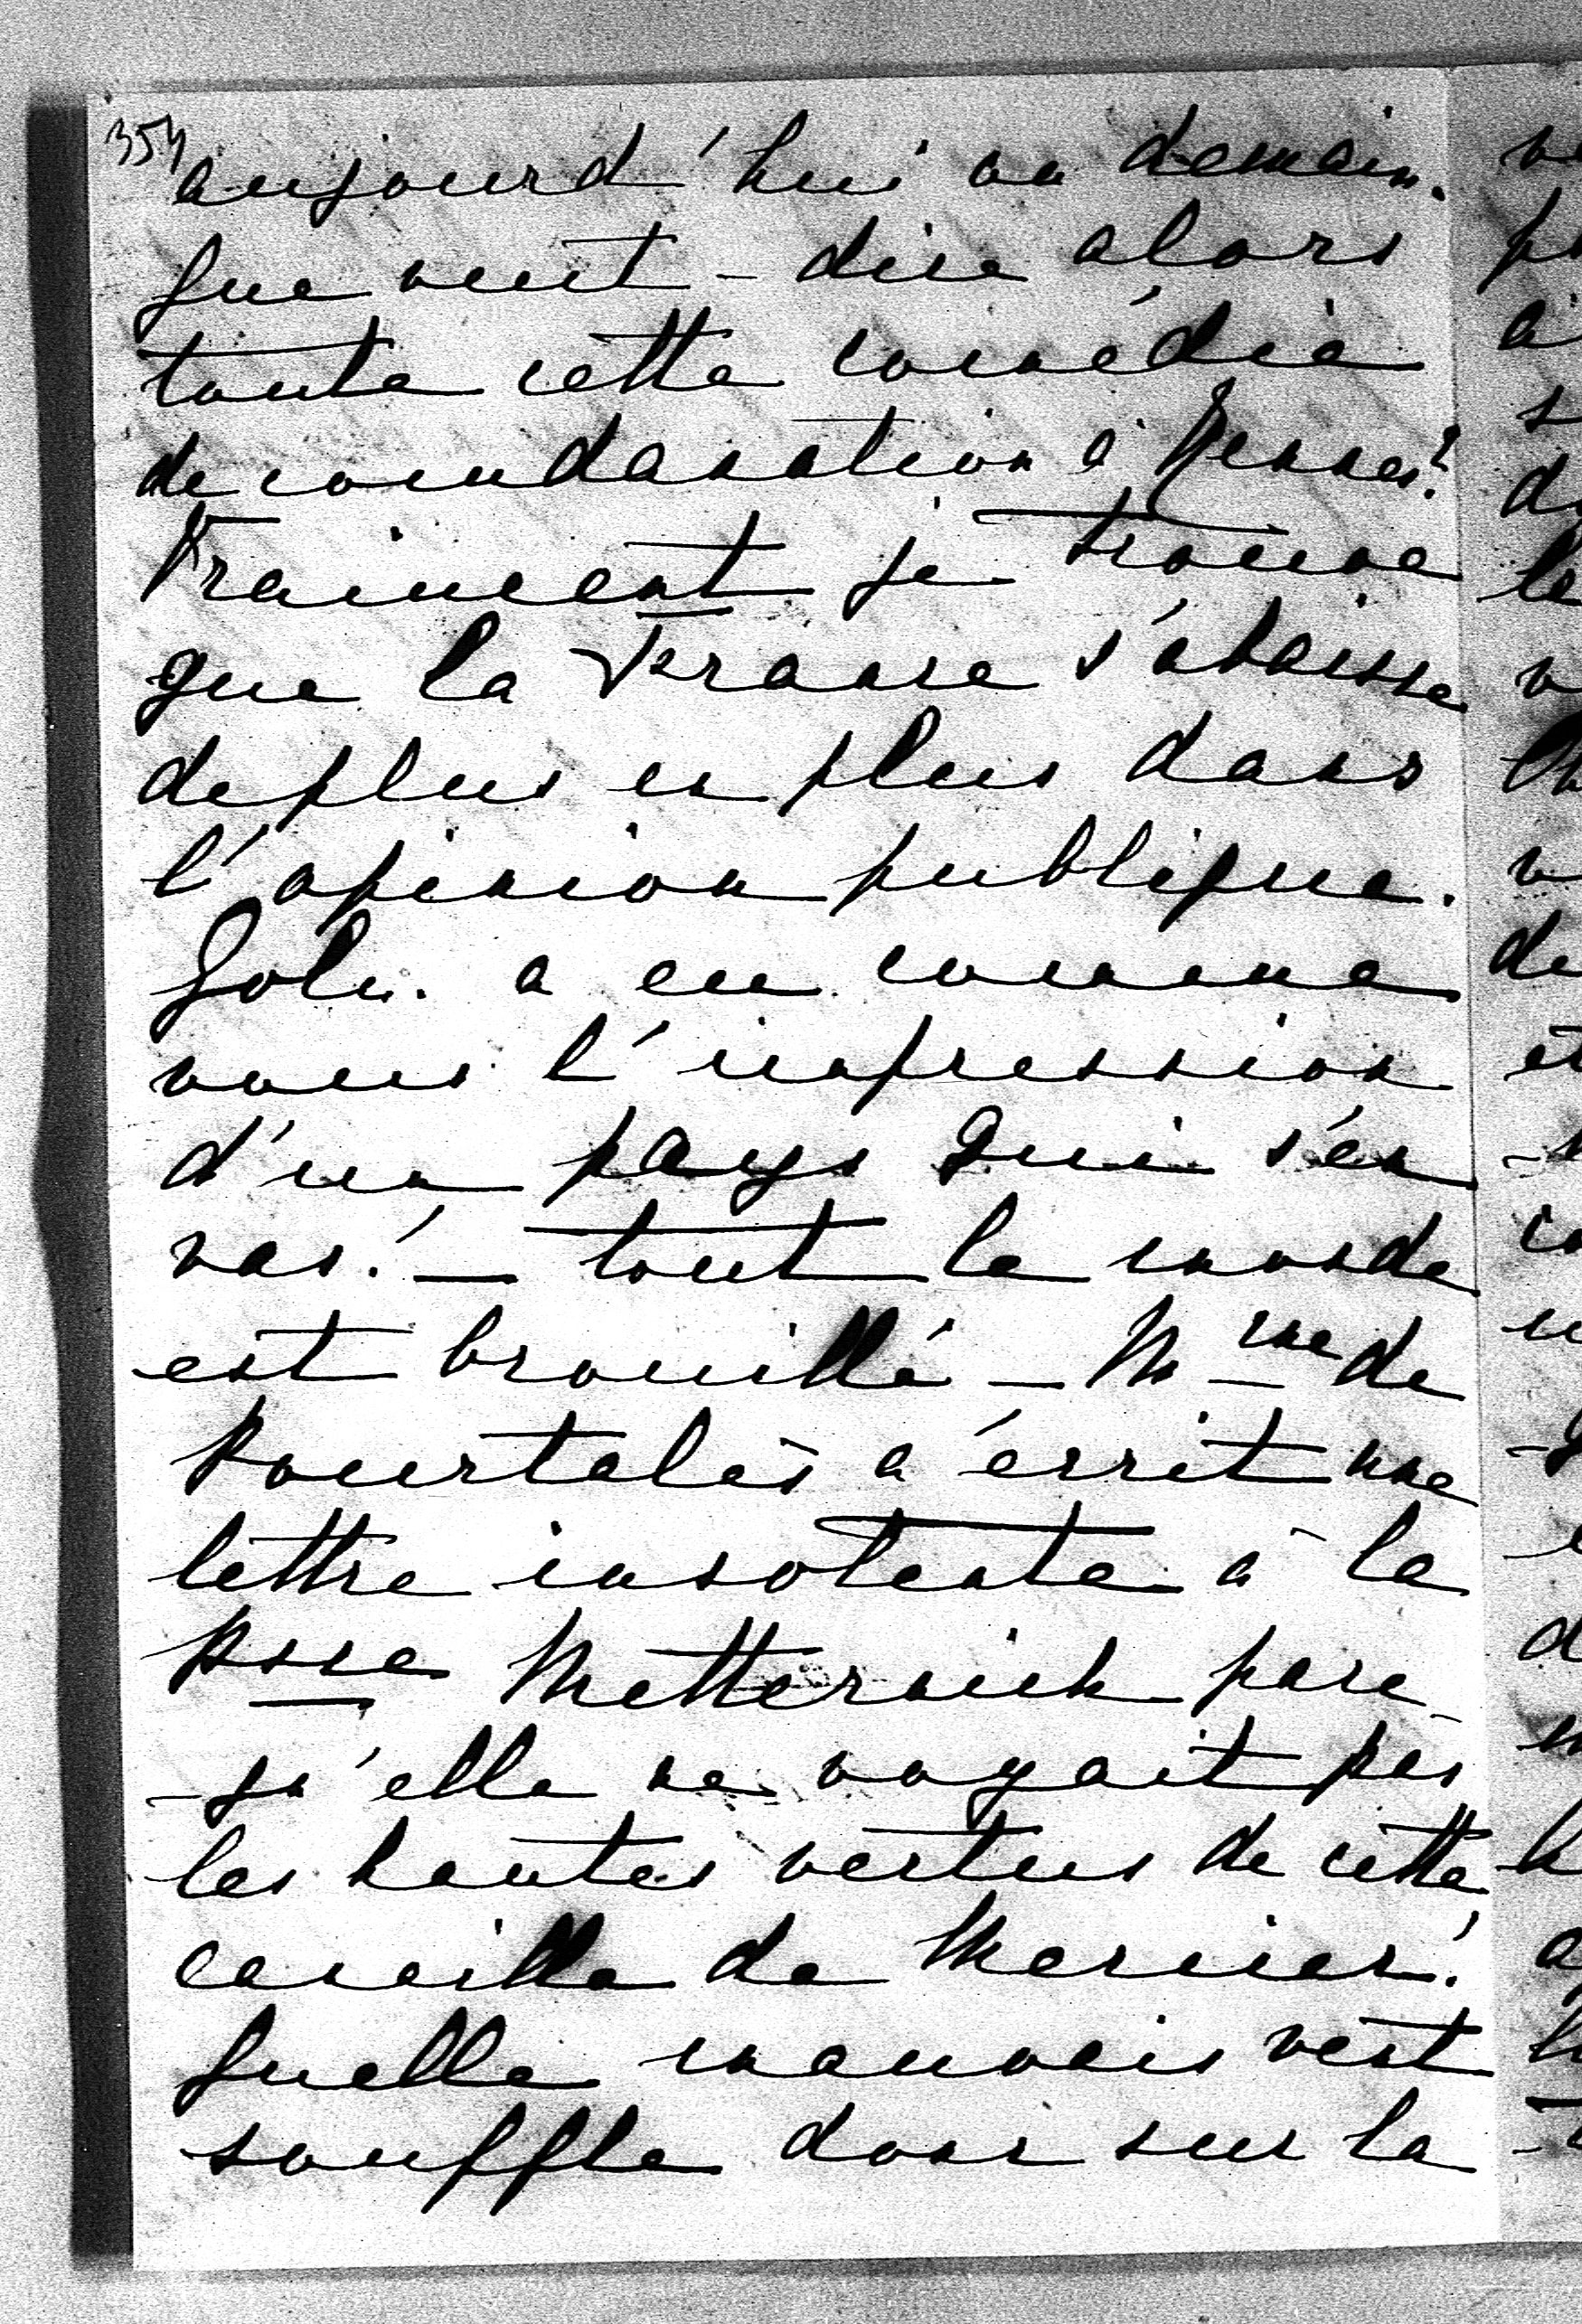 354
aujourd'hui ou demain.
Que veut-dire alors
toute cette comédie
de condanation à Rennes?
Vraiment je trouve
que la France s'abaisse
de plus en plus dans
l'opinion publique.
Golu. a eu comme
vous l'impression
d'un pays qui s'en
vas! — tout le monde
est brouillé — Mme de
Pourtalès a écrit une
lettre insolente à la
Psse Metternich parc
-qu'elle ne voyait pas
les hautes vertus de cette
canaille de Mercier!
Quelle mauvais vent
souffle donc sur la